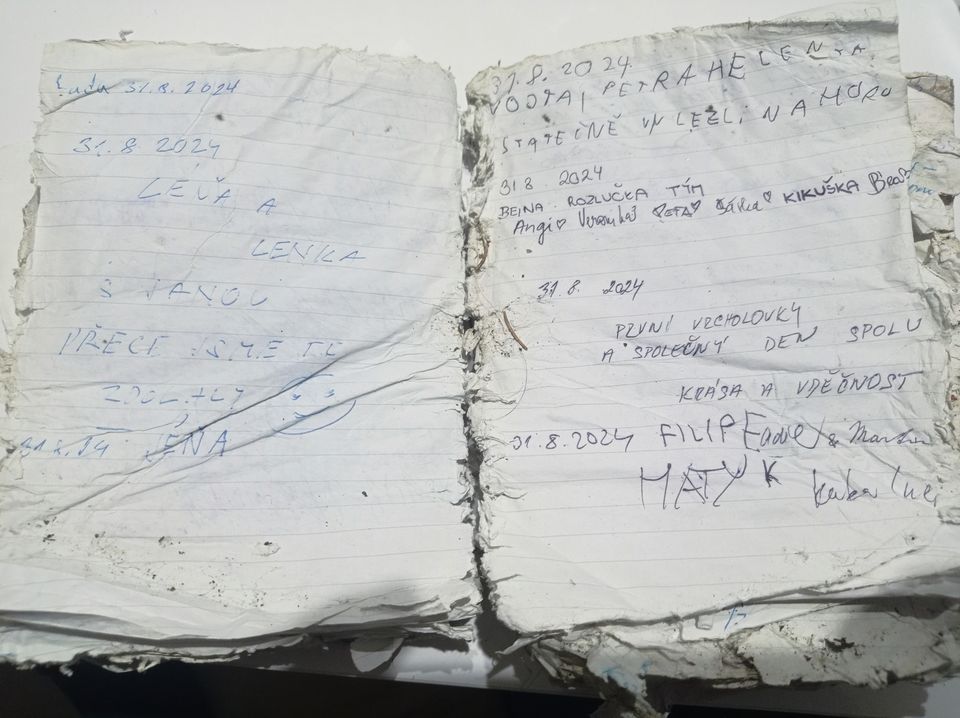 31.8.2024
31.8 2024
LEŇA A
LENKA
S JANOU
PŘECE JSME TĚ
ZDOLALY
31.8.24 LEŇA
31.8.2024
VOJTA, PETRA HELENKA
STATEČNĚ VYLEZLI NA HORU
31 8. 2024
BEJNA ROZLUČKA TÝM
Angi♡ Verunka♡ PEŤA♡ Šárka♡ KIKUŠKA
31.8. 2024
PRVNÍ VRCHOLOVKY
A SPOLEČNÝ DEN SPOLU
KRÁSA A VDĚČNOST
31.8.2024 FILIP & Martin
MATY K Kuba Luci